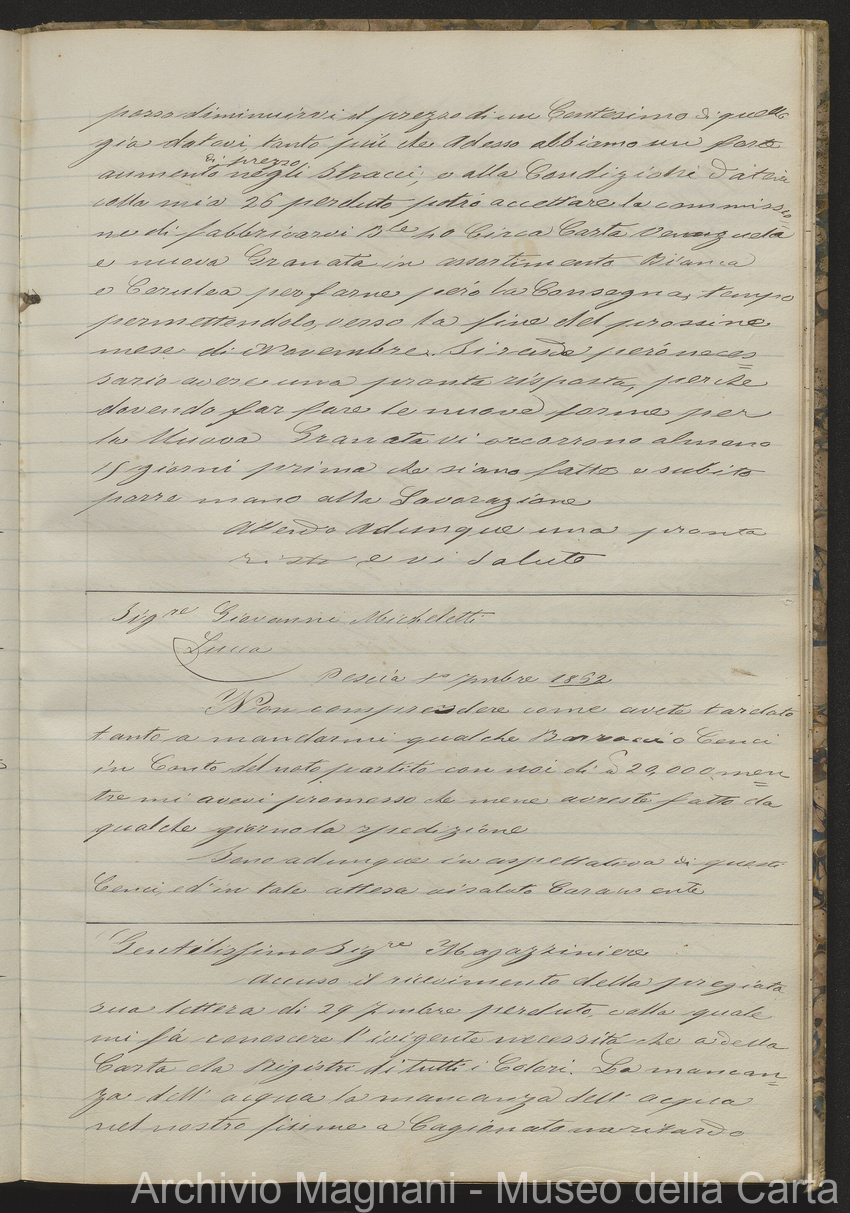 posso diminuirvi il prezzo di un Centesimo di quello
gia datovi, tanto più che Adesso abbiamo un forte
aumento di prezzo negli Stracci, e alla Condizioni datevi
colla mia 26 perduto potrò accettare la commissio
ne di fabbricarvi B.le 40 Circa Carta Venezuela
e nuova Granata in assortimento Bianca
e Cerulea per farne però la Consegna, tempo
permettendolo, verso la fine del prossimo
mese di Novembre. Si rende però neces=
sario avere una pronta risposta, perche
dovendo far fare le nuove forme per
la Nuova Granata vi occorrono almeno
15 giorni prima che siano fatte e subito
porre mano alla Lavorazione
Attendo Adunque una pronta
rispta e vi saluto
Sig.re Giovanni Micheletti
Lucca
Pescia 1° 7mbre 1862
Non comprendere come avete tardato
tanto a mandarmi qualche Barroccio Cenci
in Conto del noto partito con voi di 20,000 men=
tre mi avevi promesso che mene avreste fatto da
qualche giorno la spedizione
Sono adunque in aspettativa di questi
Cenci, ed in tale attesa vi saluto Caramente
Gentilissimo Sig.re Magazziniere
Accuso il ricevimento della pregiata
sua lettera di 29 7mbre perduto, colla quale
mi fà conoscere l'urgente necessità che a della
Carta da Registri di tutti i Colori. La mancan=
za dell' acqua la mancanza dell' acqua
nel nostro fiume a Cagionato un ritardo
Archivio Magnani - Museo della Carta